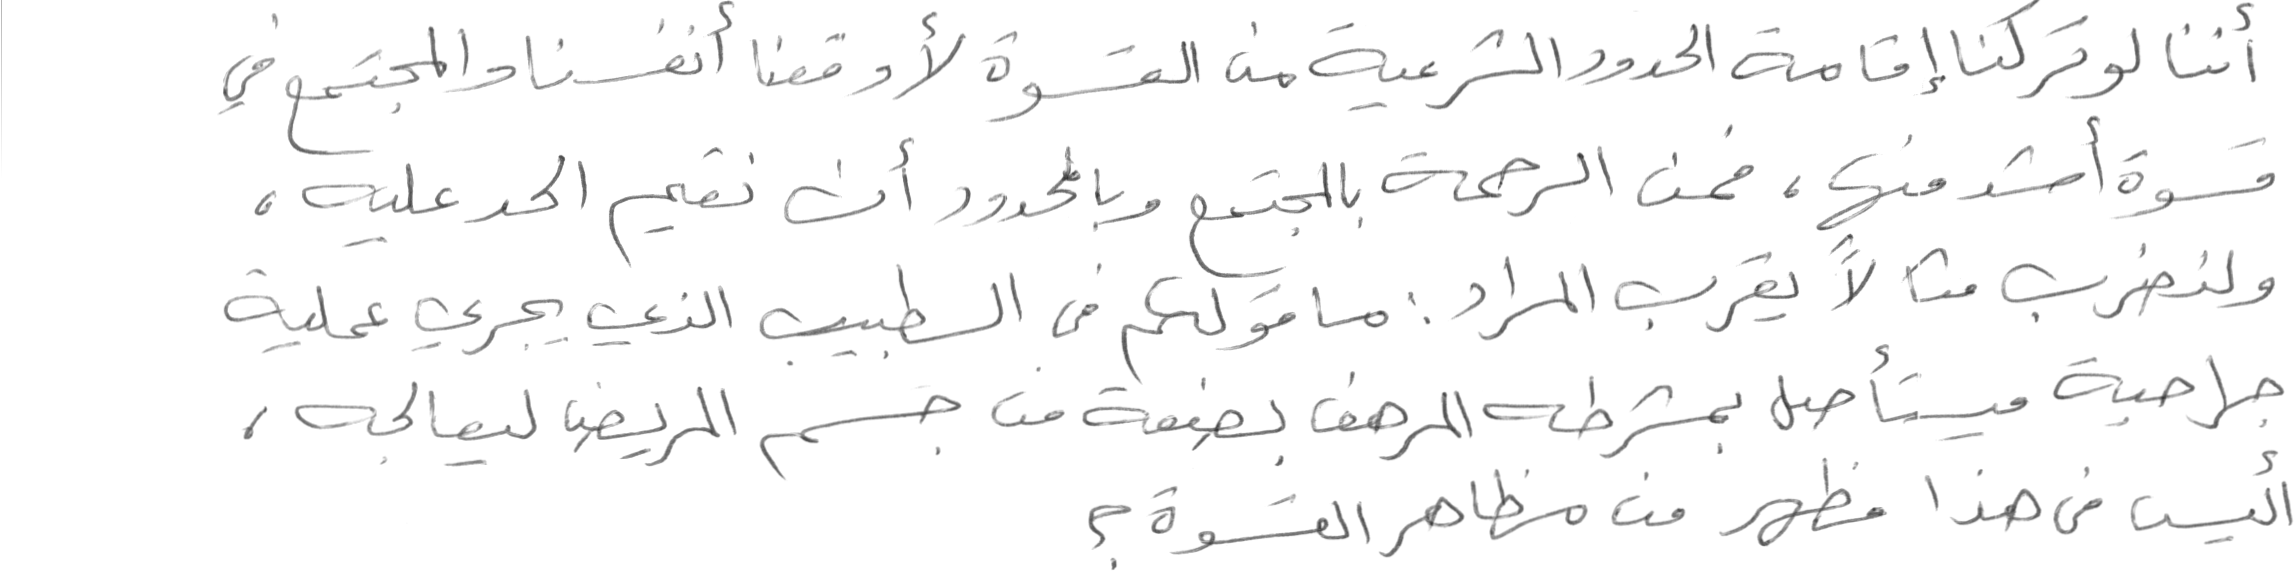 أننا لو تركنا إقامة الحدود الشرعية من القسوة لأوقعنا أنفسنا والمجتمع في
قسوة أشد منها، فمن الرحمة بالمجتمع وبالمحدود أن نقيم الحد عليه،
ولنضرب مثالاً يقرب المراد: ما قولكم في الطبيب الذي يجري عملية
جراحية فيستأصل بمشرطه المرهف بضعة من جسم المريض ليعالجه،
أليس في هذا مظهر من مظاهر القسوة؟